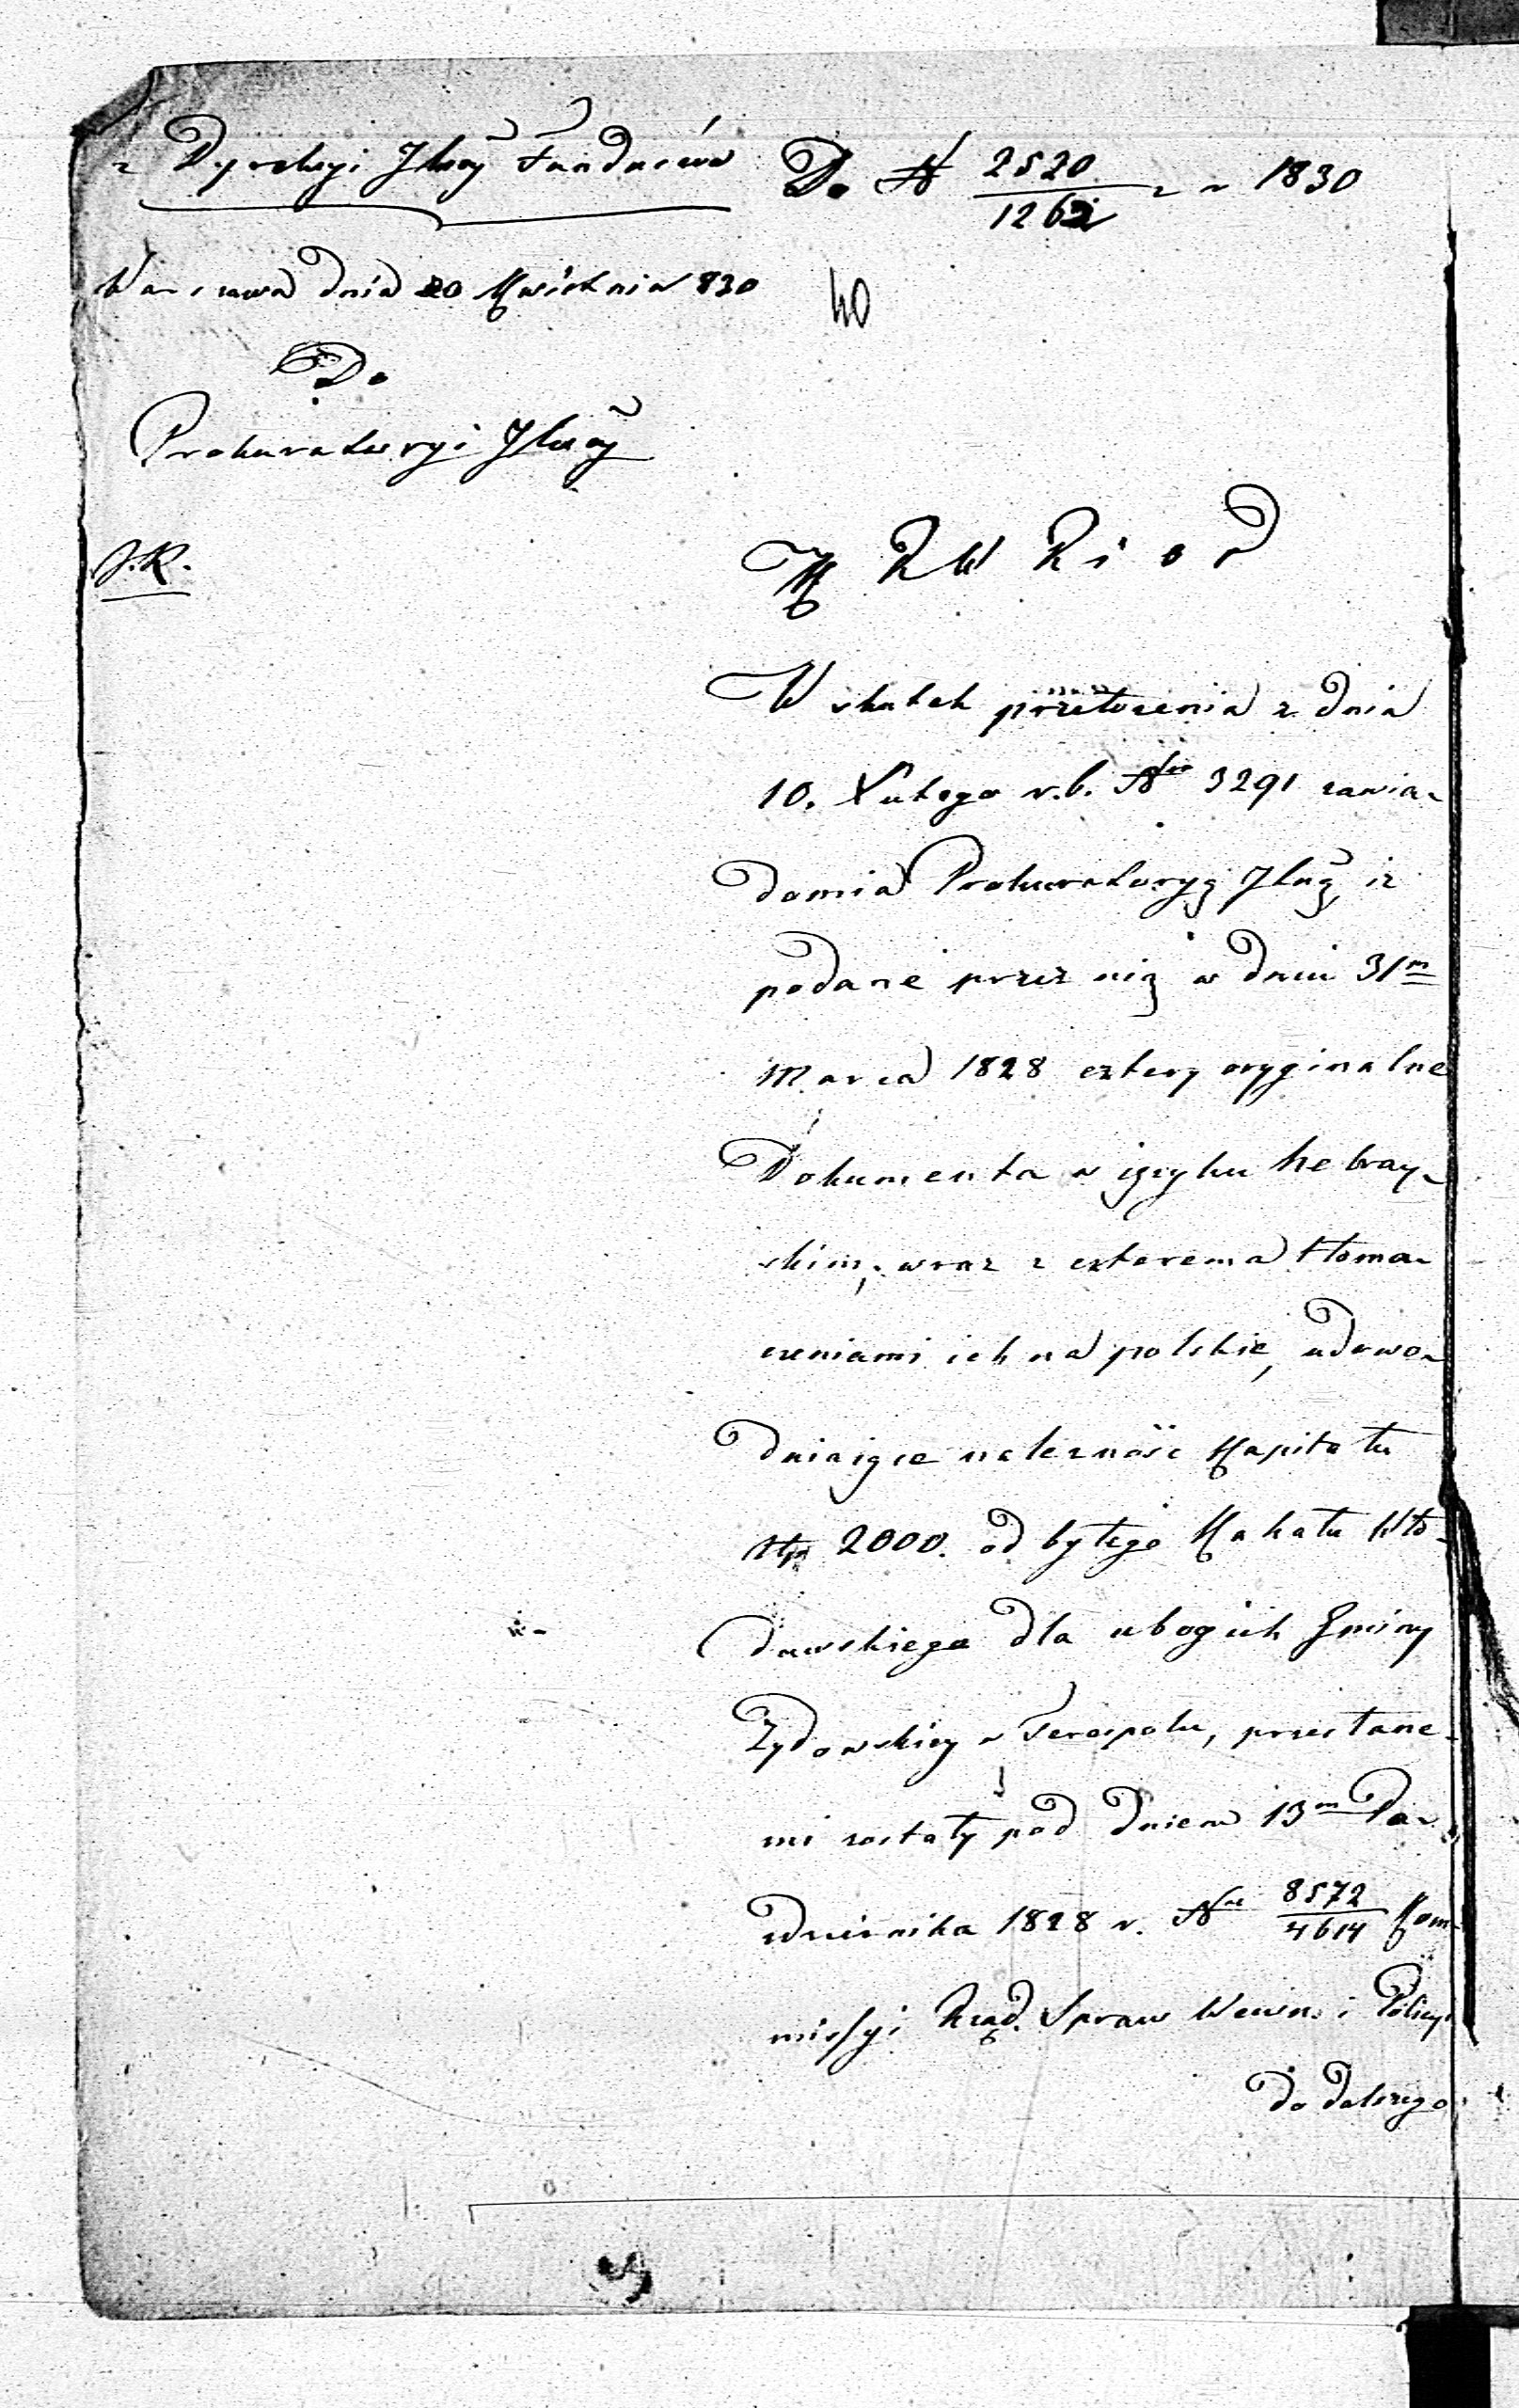 z Dyrekcyi Jlney Funduszów
Do N 2520/1262 z r 1830
Warszawa dnia 20 Kwietnia 830
40
Do
Prokuratoryi Jlney
J.K.
K R W R i O P
W skutek przełożenia z dnia
10. Lutego r.b. Nro 3291 zawia-
damia Prokuratoryą Jlną iż
podane przez nią w dniu 31m
Marca 1828 cztery oryginalne
Dokumenta w ięzyku hebray-
skim, wraz z czterema tłoma-
czeniami ich na polskie, udowo-
dniaiące należność Kapitału
złp 2000. od byłego Kahału Wło-
dawskiego dla ubogich Gminy
Żydowskiey w Terespolu, przesłane-
mi zostały pod dniem 13m Pa-
ździernika 1828 r. Nr 8572/4614 Kom-
missyi Rząd. Spraw Wewn. i Policyi
do dalszego